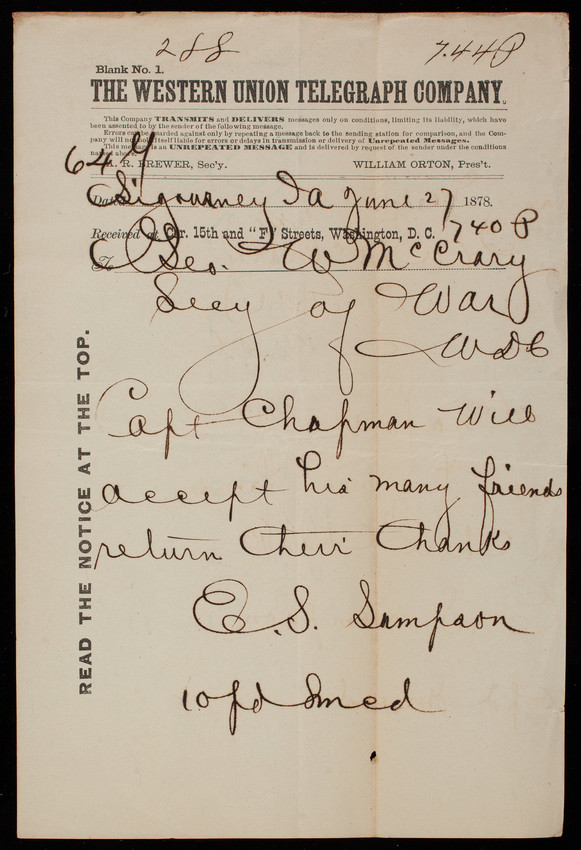 288 7.44 P
Blank No. 1.
THE WESTERN UNION TELEGRAPH COMPANY.
This Company TRANSMITS and DELIVERS messages only on conditions, limiting its liability, which have
been assented to by the sender of the following message.
Errors can be guarded against only by repeating a message back to the sending station for comparison, and the Com-
pany will not hold itself liable for errors or delays in transmission or delivery of Unrepeated Messages.
This message is an UNREPEATED MESSAGE and is delivered by request of the sender under the conditions
named above.
64 y
A. R. BREWER, Sec'y. WILLIAM ORTON, Pres't.
Dated Sigourney Ia June 27 1878.
Received at Cor. 15th and "F" Streets, Washington, D. C. 740 P
To Geo. W McCrary
Secy of War
WDC
Capt Chapman Will
accept his many friends
return their thanks
E. S. Sampson
10 pd Smcd
READ THE NOTICE AT THE TOP.